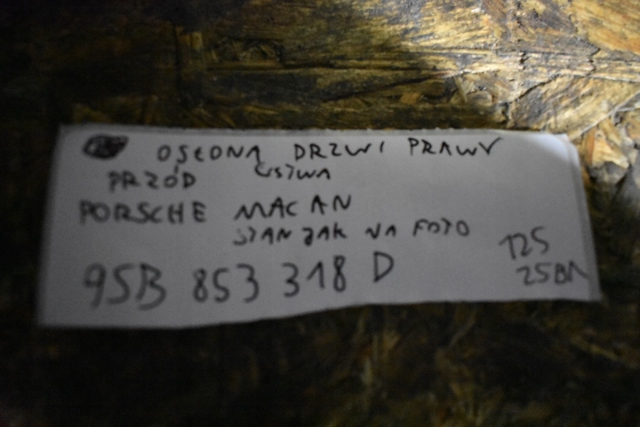 OSŁONA DRZWI PRAWY
PRZÓD LISTWA
PORSCHE MACAN
STAN JAK NA FOTO
95B 853 318 D
125